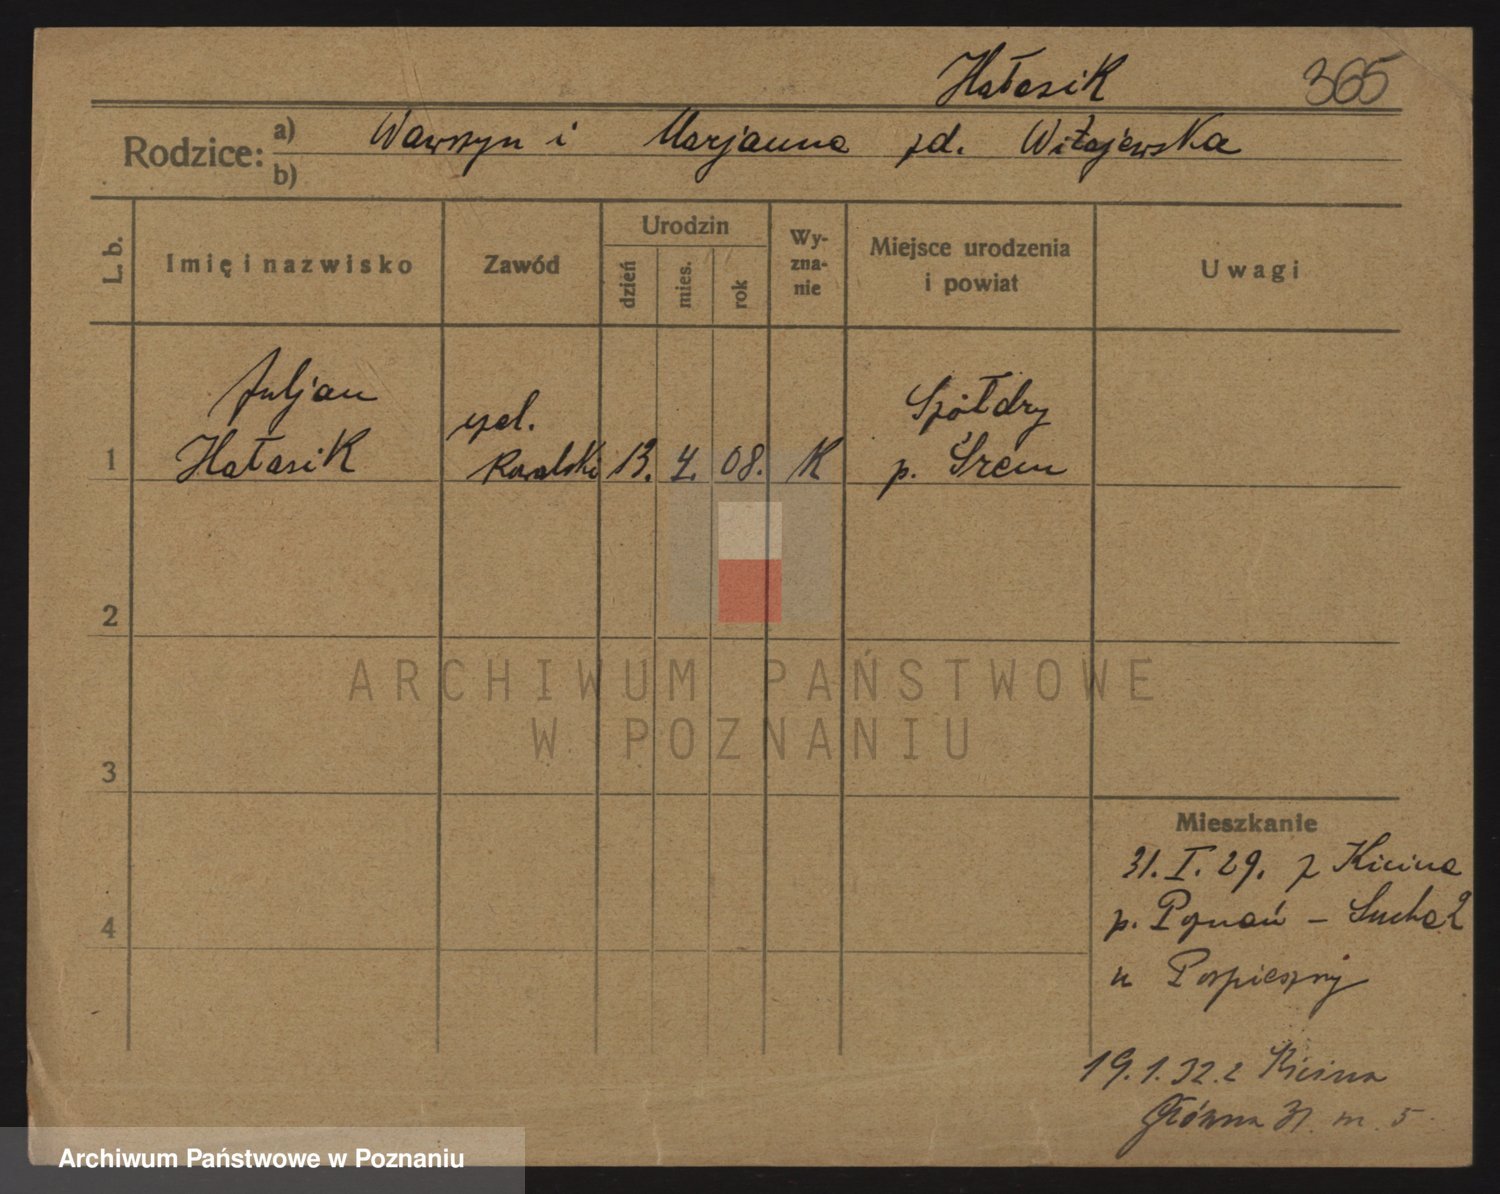 Hałasik 365
Rodzice: a) Wawrzyn i Marjanna zd. Witajewska
b)
L. b. Imię i nazwisko Zawód Urodzin Wyznanie Miejsce urodzenia i powiat Uwagi
dzień mies. rok
Juljan czel. Spółdry
1 Hałasik Kowalski 13. 4. 08. K p. Śrem
2
ARCHIWUM PAŃSTWOWE
W POZNANIU
3
Mieszkanie
31. I. 29. z Kicina
p. Poznań – Sucha 2
4
u Pospiesznej
19.1.32. z Kicina
Główna 31. m. 5
Archiwum Państwowe w Poznaniu